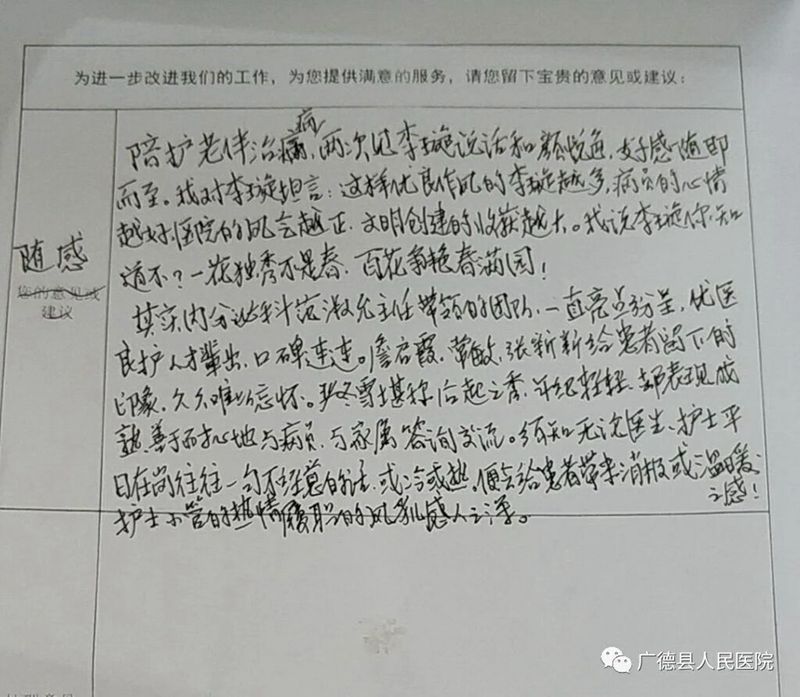 为进一步改进我们的工作，为您提供满意的服务，请您留下宝贵的意见或建议：
随感
您的意见或
建议
陪护老伴治病，两次见李璇说话和颜悦色，好感随即
而至。我对李璇坦言：这样优良作风的李璇越多，病员的心情
越好，医院的风气越正，文明创建的收获越大。我说李璇你知
道不？一花独秀不是春，百花争艳春满园！
其实内分泌科范淑允主任带领的团队，一直亮点纷呈，优医
良护人才辈出，口碑连连。詹启霞，常敏，张新新给患者留下的
印象，久久难以忘怀。冬雪堪称后起之秀，年纪轻轻，却表现成
熟，善于面地与病员，与家属答询交流。须知无论医生、护士平
日在岗往往一句不经意的话，或冷或热，便会给患者带来消极或温暖
之感！
护士小管的热情履职的风，感人之深。
广德县人民医院